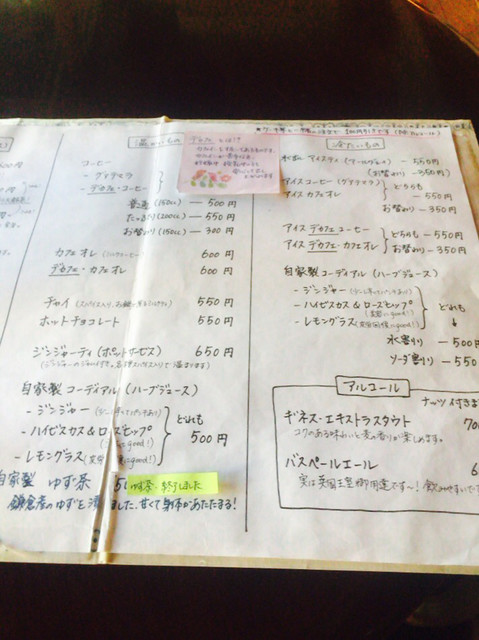 温かいもの
デカフェとは!?
コーヒー
- グァテマラ
- デカフェ・コーヒー
普通 (150cc) — 500円
たっぷり (200cc) — 550円
お替わり (150cc) — 300円
カフェオレ 600円
デカフェ・カフェオレ 600円
チャイ 550円
ホットチョコレート 550円
ジンジャーティ (ポットサービス) 650円
自家製コーディアル (ハーブジュース)
- ジンジャー
- ハイビスカス & ローズヒップ
- レモングラス
どれも
500円
自家製 ゆず茶
ゆず茶 終了しました
鎌倉産のゆずを ました。甘くて身体があたたまる!
冷たいもの
水出しアイスティ — 550円
(お替わり — 350円)
アイスコーヒー (グァテマラ)
アイスカフェオレ
どちらも — 550円
お替わり — 350円
アイスデカフェコーヒー
アイスデカフェ・カフェオレ
どちらも — 550円
お替わり — 350円
自家製コーディアル (ハーブジュース)
- ジンジャー
- ハイビスカス & ローズヒップ
- レモングラス
どれも
↓
水割り — 500円
ソーダ割り — 550
アルコール
ナッツ付きま
ギネス・エキストラスタウト 70
コクのある味わいと麦の香りが楽しめます。
バスペールエール 6
実は英国王室御用達です〜! 飲みやすいで